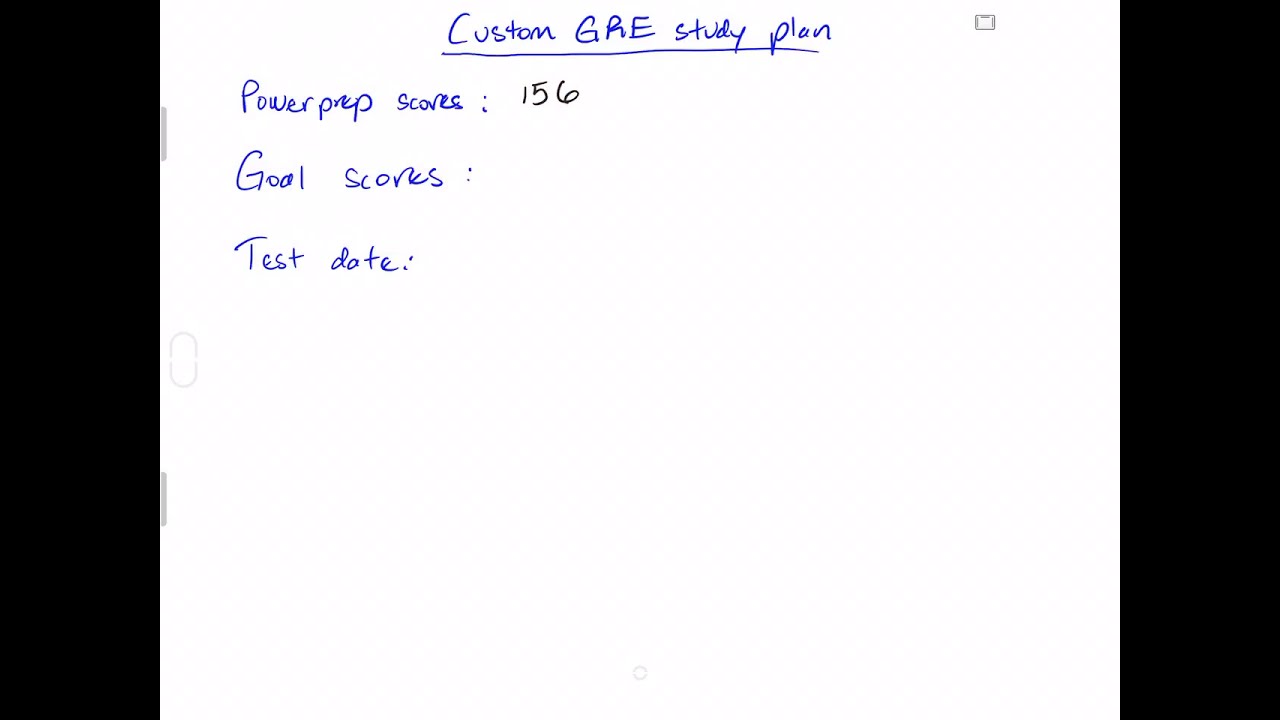 Custom GRE study plan
Powerprep scores: 156
Goal scores:
Test date: